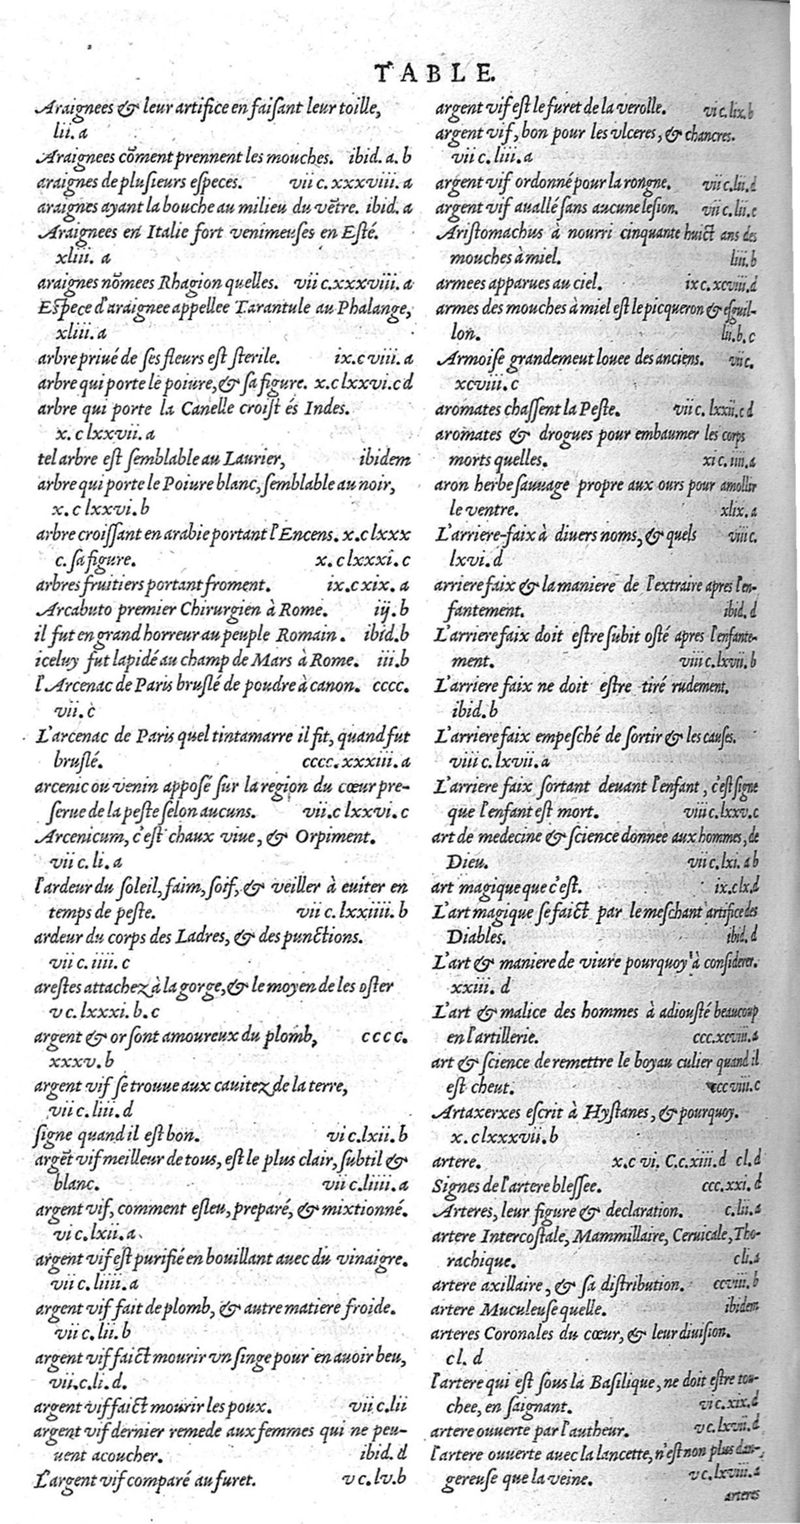 TABLE.
Araignees & leur artifice en faisant leur toille,
lii. a
Araignees cōment prennent les mouches. ibid. a. b
araignes de plusieurs especes. vii c. xxxviii. a
araignes ayant la bouche au milieu du vētre. ibid. a
Araignees en Italie fort venimeuses en Esté.
xliii. a
araignes nōmees Rhagion quelles. vii c. xxxviii. a
Espece d'araignee appellee Tarantule au Phalange,
xliii. a
arbre priué de ses fleurs est sterile. ix. c viii. a
arbre qui porte le poiure, & sa figure. x. c lxxvi. c d
arbre qui porte la Canelle croist és Indes.
x. c lxxvii. a
tel arbre est semblable au Laurier, ibidem
arbre qui porte le Poiure blanc, semblable au noir,
x. c lxxvi. b
arbre croissant en arabie portant l'Encens. x. c lxxx
c. sa figure. x. c lxxxi. c
arbres fruitiers portant froment. ix. c xix. a
Arcabuto premier Chirurgien à Rome. iij. b
il fut en grand horreur au peuple Romain. ibid. b
iceluy fut lapidé au champ de Mars à Rome. iii. b
l'Arcenac de Paris bruslé de poudre à canon. cccc.
vii. c
L'arcenac de Paris quel tintamarre il fit, quand fut
bruslé. cccc. xxxiii. a
arcenic ou venin apposé sur la region du cœur pre-
serue de la peste selon aucuns. vii. c lxxvi. c
Arcenicum, c'est chaux viue, & Orpiment.
vii c. li. a
l'ardeur du soleil, faim, soif, & veiller à euiter en
temps de peste. vii c. lxxiiii. b
ardeur du corps des Ladres, & des punctions.
vii c. iiii. c
arestes attachez à la gorge, & le moyen de les oster
v c. lxxxi. b. c
argent & or sont amoureux du plomb, cccc.
xxxv. b
argent vif se trouue aux cauitez de la terre,
vii c. liii. d
signe quand il est bon. vi c. lxii. b
argēt vif meilleur de tous, est le plus clair, subtil &
blanc. vii c. liiii. a
argent vif, comment esleu, preparé, & mixtionné.
vi c. lxii. a
argent vif est purifié en bouillant auec du vinaigre.
vii c. liiii. a
argent vif fait de plomb, & autre matiere froide.
vii c. lii. b
argent vif faict mourir vn singe pour en auoir beu,
vii. c. li. d.
argent vif faict mourir les poux. vii c. lii
argent vif dernier remede aux femmes qui ne peu-
uent acoucher. ibid. d
L'argent vif comparé au furet. v c. lv. b
argent vif est le furet de la verolle. vi c. lix. b
argent vif, bon pour les vlceres, & chancres.
vii c. liii. a
argent vif ordonné pour la rongne. vii c. lii. d
argent vif auallé sans aucune lesion. vii c. lii. c
Aristomachus à nourri cinquante huict ans des
mouches à miel. liii. b
armees apparues au ciel. ix c. xcviii. d
armes des mouches à miel est le picqueron & esguil-
lon. lii. b. c
Armoise grandemeut louee des anciens. vii c.
xcviii. c
aromates chassent la Peste. vii c. lxxii. c d
aromates & drogues pour embaumer les corps
morts quelles. xi c. iiii. a
aron herbe sauuage propre aux ours pour amollir
le ventre. xlix. a
L'arriere-faix à diuers noms, & quels viii c.
lxvi. d
arriere faix & la maniere de l'extraire apres l'en-
fantement. ibid. d
L'arriere faix doit estre subit osté apres l'enfante-
ment. viii c. lxvii. b
L'arriere faix ne doit estre tiré rudement.
ibid. b
L'arriere faix empesché de sortir & les causes.
viii c. lxvii. a
L'arriere faix sortant deuant l'enfant, c'est signe
que l'enfant est mort. viii c. lxxv. c
art de medecine & science donnee aux hommes, de
Dieu. vii c. lxi. a b
art magique que c'est. ix. c lx. d
L'art magique se faict par le meschant artifice des
Diables. ibid. d
L'art & maniere de viure pourquoy à considerer.
xxiii. d
L'art & malice des hommes à adiousté beaucoup
en l'artillerie. ccc. xcviii. a
art & science de remettre le boyau culier quand il
est cheut. ccc viii. c
Artaxerxes escrit à Hystanes, & pourquoy.
x. c lxxxvii. b
artere. x. c vi. C. c. xiii. d cl. d
Signes de l'artere blessee. ccc. xxi. d
Arteres, leur figure & declaration. c. lii. a
artere Intercostale, Mammillaire, Ceruicale, Tho-
rachique. cli. a
artere axillaire, & sa distribution. ccviii. b
artere Muculeuse quelle. ibidem
arteres Coronales du cœur, & leur diuision.
cl. d
l'artere qui est sous la Basilique, ne doit estre tou-
chee, en saignant. vi c. xix. d
artere ouuerte par l'autheur. v c. lxvii. d
l'artere ouuerte auec la lancette, n'est non plus dan-
gereuse que la veine. v c. lxviii. a
arteres